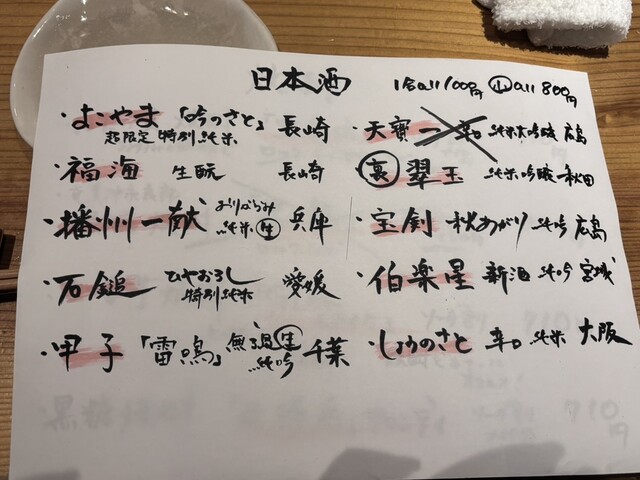 日本酒
1合all1100円 小all800円
・よこやま「吟のさと」長崎
超限定 特別純米
・福海 生酛 長崎
・播州一献 おりがらみ 純米 生 兵庫
・石鎚 ひやおろし 特別純米 愛媛
・甲子「雷鳴」無ろ過 生 純吟 千葉
・天寶一 辛口 純米大吟醸 広島
・裏 翠玉 純米吟醸 秋田
・宝剣 秋あがり 純吟 広島
・伯楽星 新酒 純吟 宮城
・しょうのさと 辛口 純米 大阪
710円